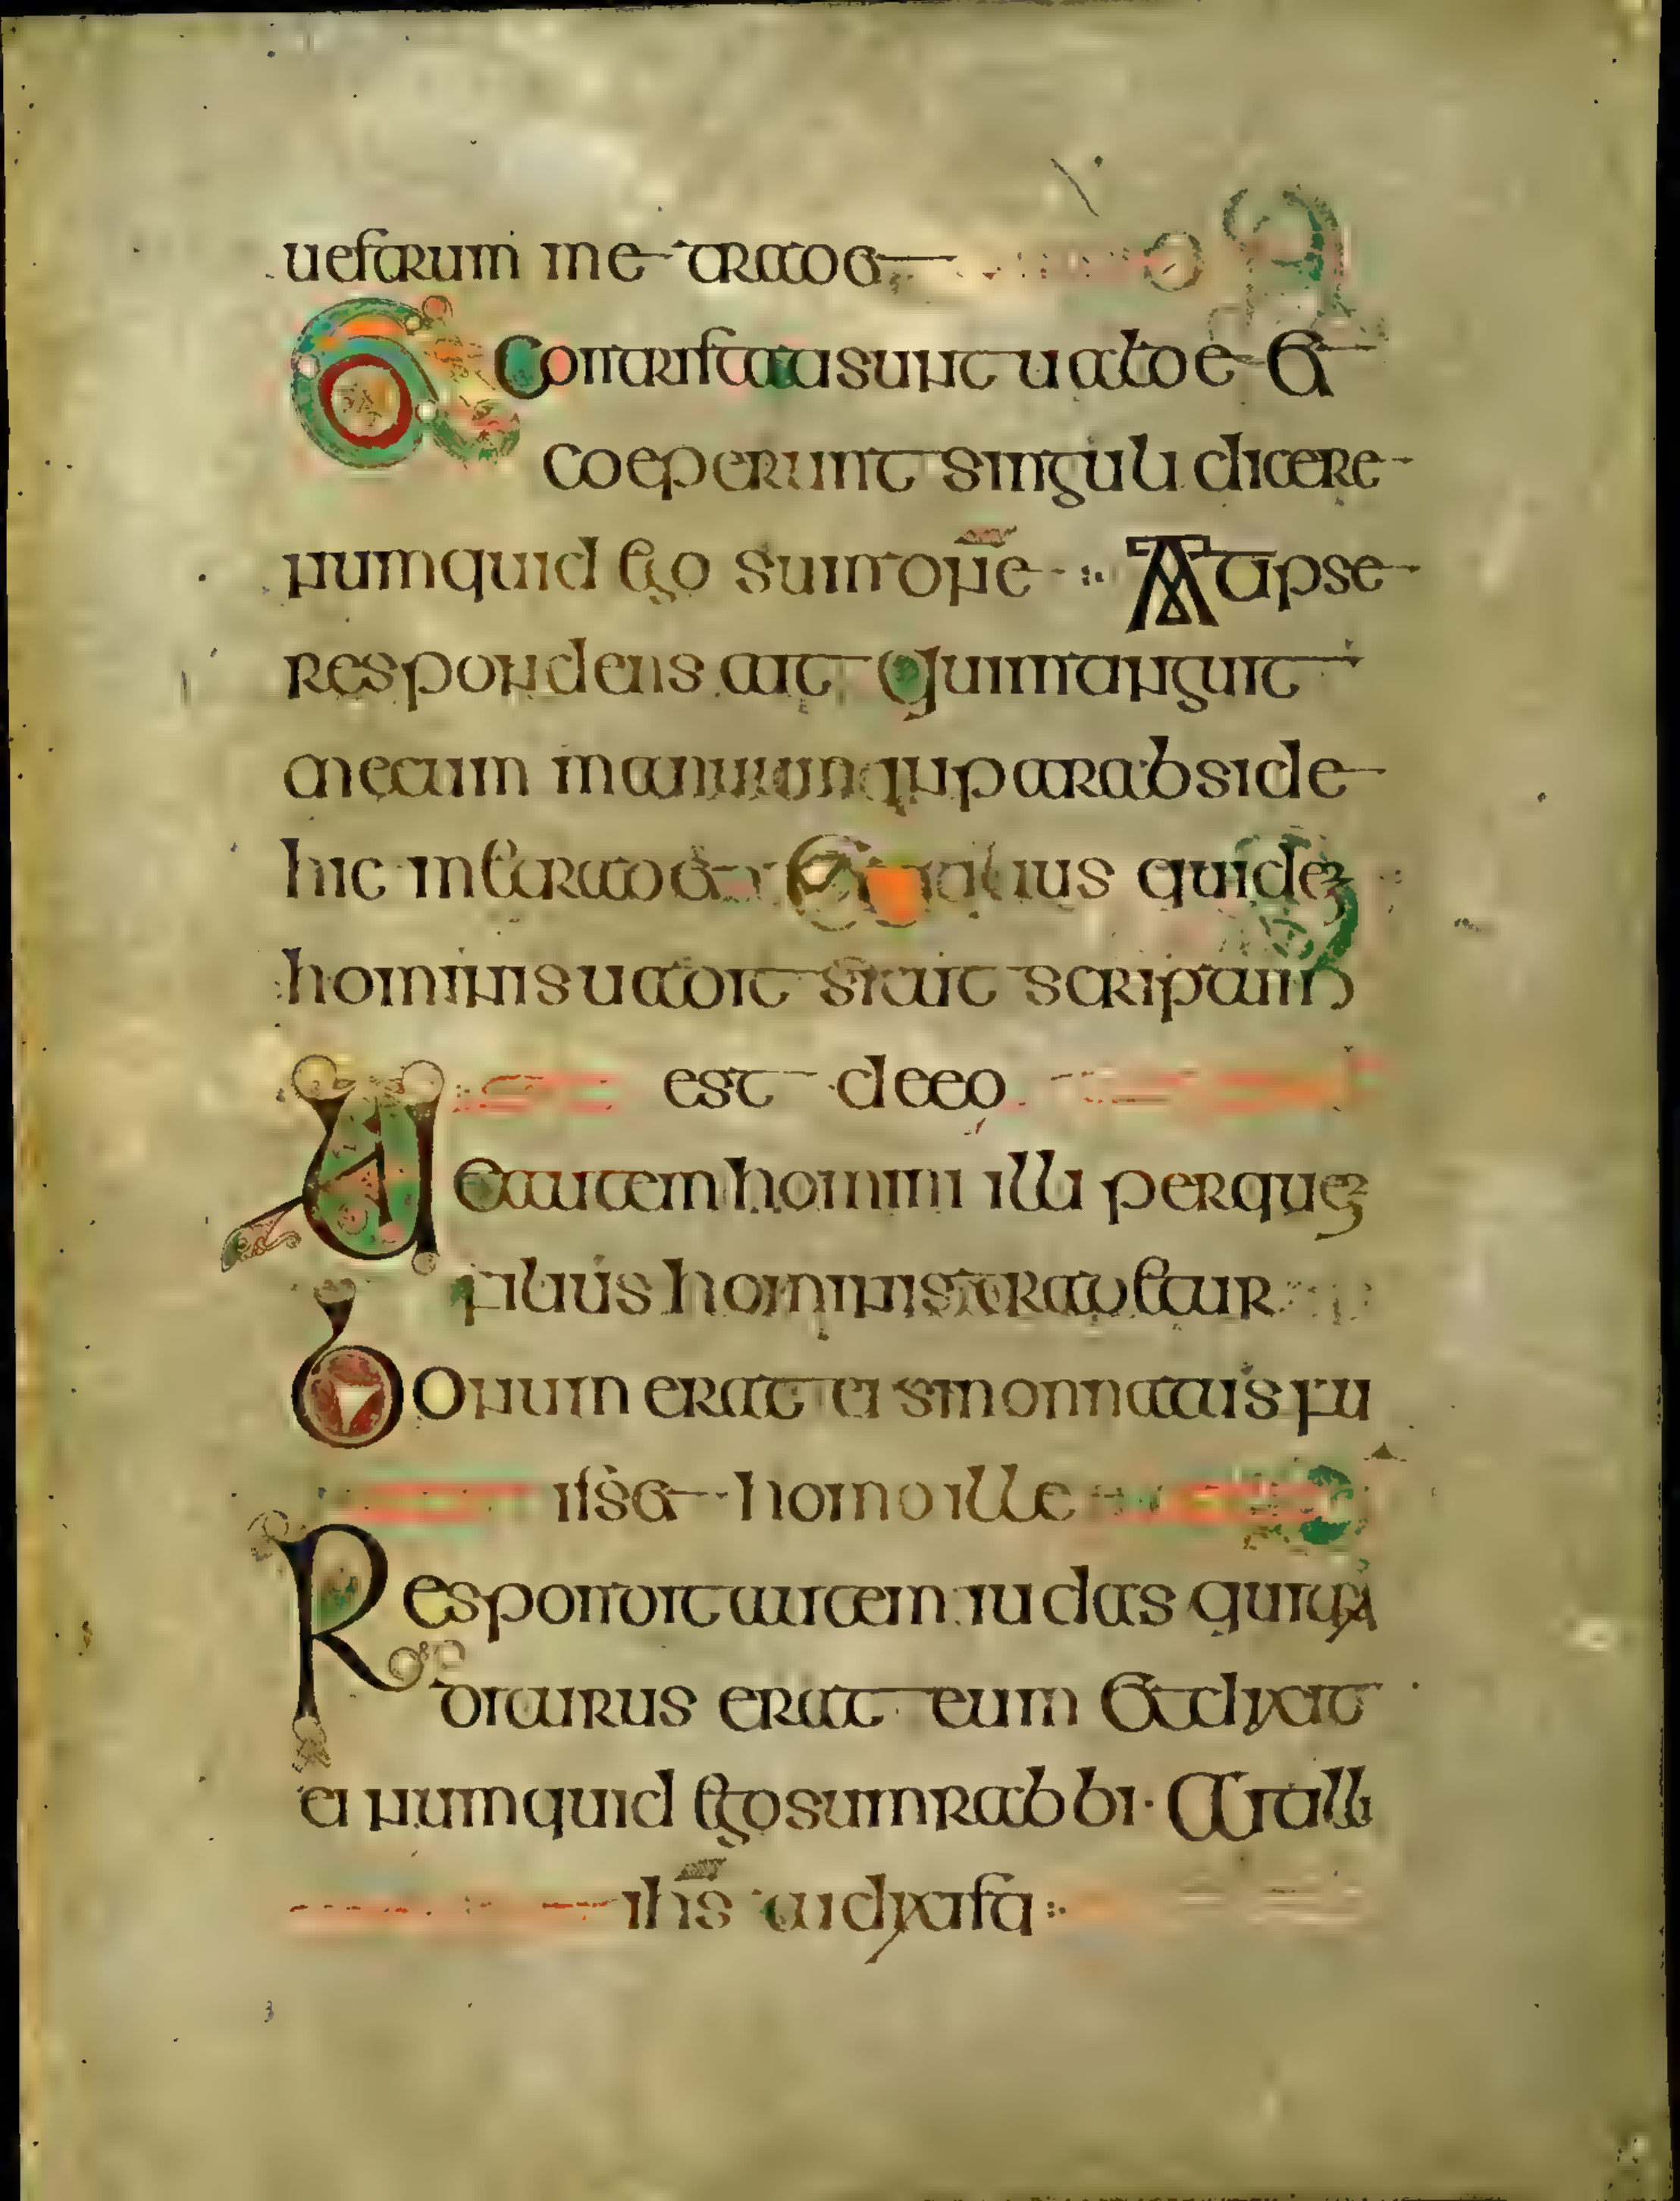 uestrum me tradet
Et contristati sunt ualde et
coeperunt singuli dicere
numquid ego sum dn̄e At ipse
respondens ait Qui intanguit
mecum manum in parabside
hic me tradet Et filius quidē
hominis uadit sicut scriptum
est de eo
Uae autem homini illi per quē
filius hominis tradetur
Bonum erat ei si non natus fu
isset homo ille
Respondit autem iudas qui tra
diturus erat eum et dixit
ei numquid ego sum rabbi · Ait illi
ihs̄ tu dixisti